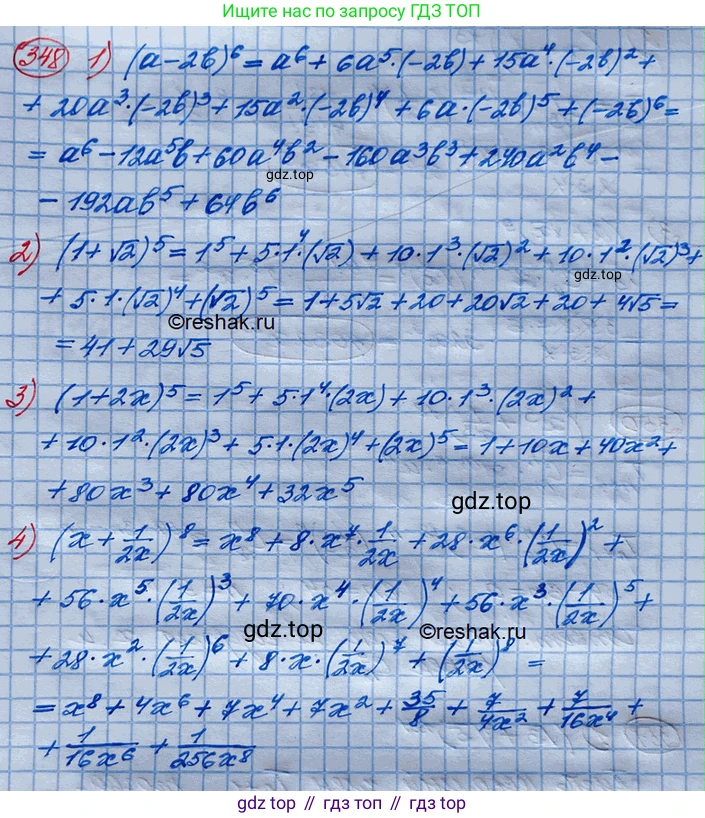 Пишите нас по запросу ГДЗ ТОП
348 1) (a-2b)⁶ = a⁶ + 6a⁵·(-2b) + 15a⁴·(-2b)² +
+ 20a³·(-2b)³ + 15a²·(-2b)⁴ + 6a·(-2b)⁵ + (-2b)⁶ =
= a⁶ - 12a⁵b + 60a⁴b² - 160a³b³ + 240a²b⁴ -
gdz.top
- 192ab⁵ + 64b⁶
2) (1+√2)⁵ = 1⁵ + 5·1⁴·(√2) + 10·1³·(√2)² + 10·1²·(√2)³ +
gdz.top
+ 5·1·(√2)⁴ + (√2)⁵ = 1 + 5√2 + 20 + 20√2 + 20 + 4√5 =
©reshak.ru
= 41 + 29√5
3) (1+2x)⁵ = 1⁵ + 5·1⁴·(2x) + 10·1³·(2x)² +
+ 10·1²·(2x)³ + 5·1·(2x)⁴ + (2x)⁵ = 1 + 10x + 40x² +
+ 80x³ + 80x⁴ + 32x⁵
gdz.top
4) (x + 1/2x)⁸ = x⁸ + 8·x⁷·1/2x + 28·x⁶·(1/2x)² +
+ 56·x⁵·(1/2x)³ + 70·x⁴·(1/2x)⁴ + 56·x³·(1/2x)⁵ +
gdz.top
©reshak.ru
+ 28·x²·(1/2x)⁶ + 8·x·(1/2x)⁷ + (1/2x)⁸ =
= x⁸ + 4x⁶ + 7x⁴ + 7x² + 35/8 + 7/4x² + 7/16x⁴ +
+ 1/16x⁶ + 1/256x⁸
gdz top // гдз топ // gdz.top